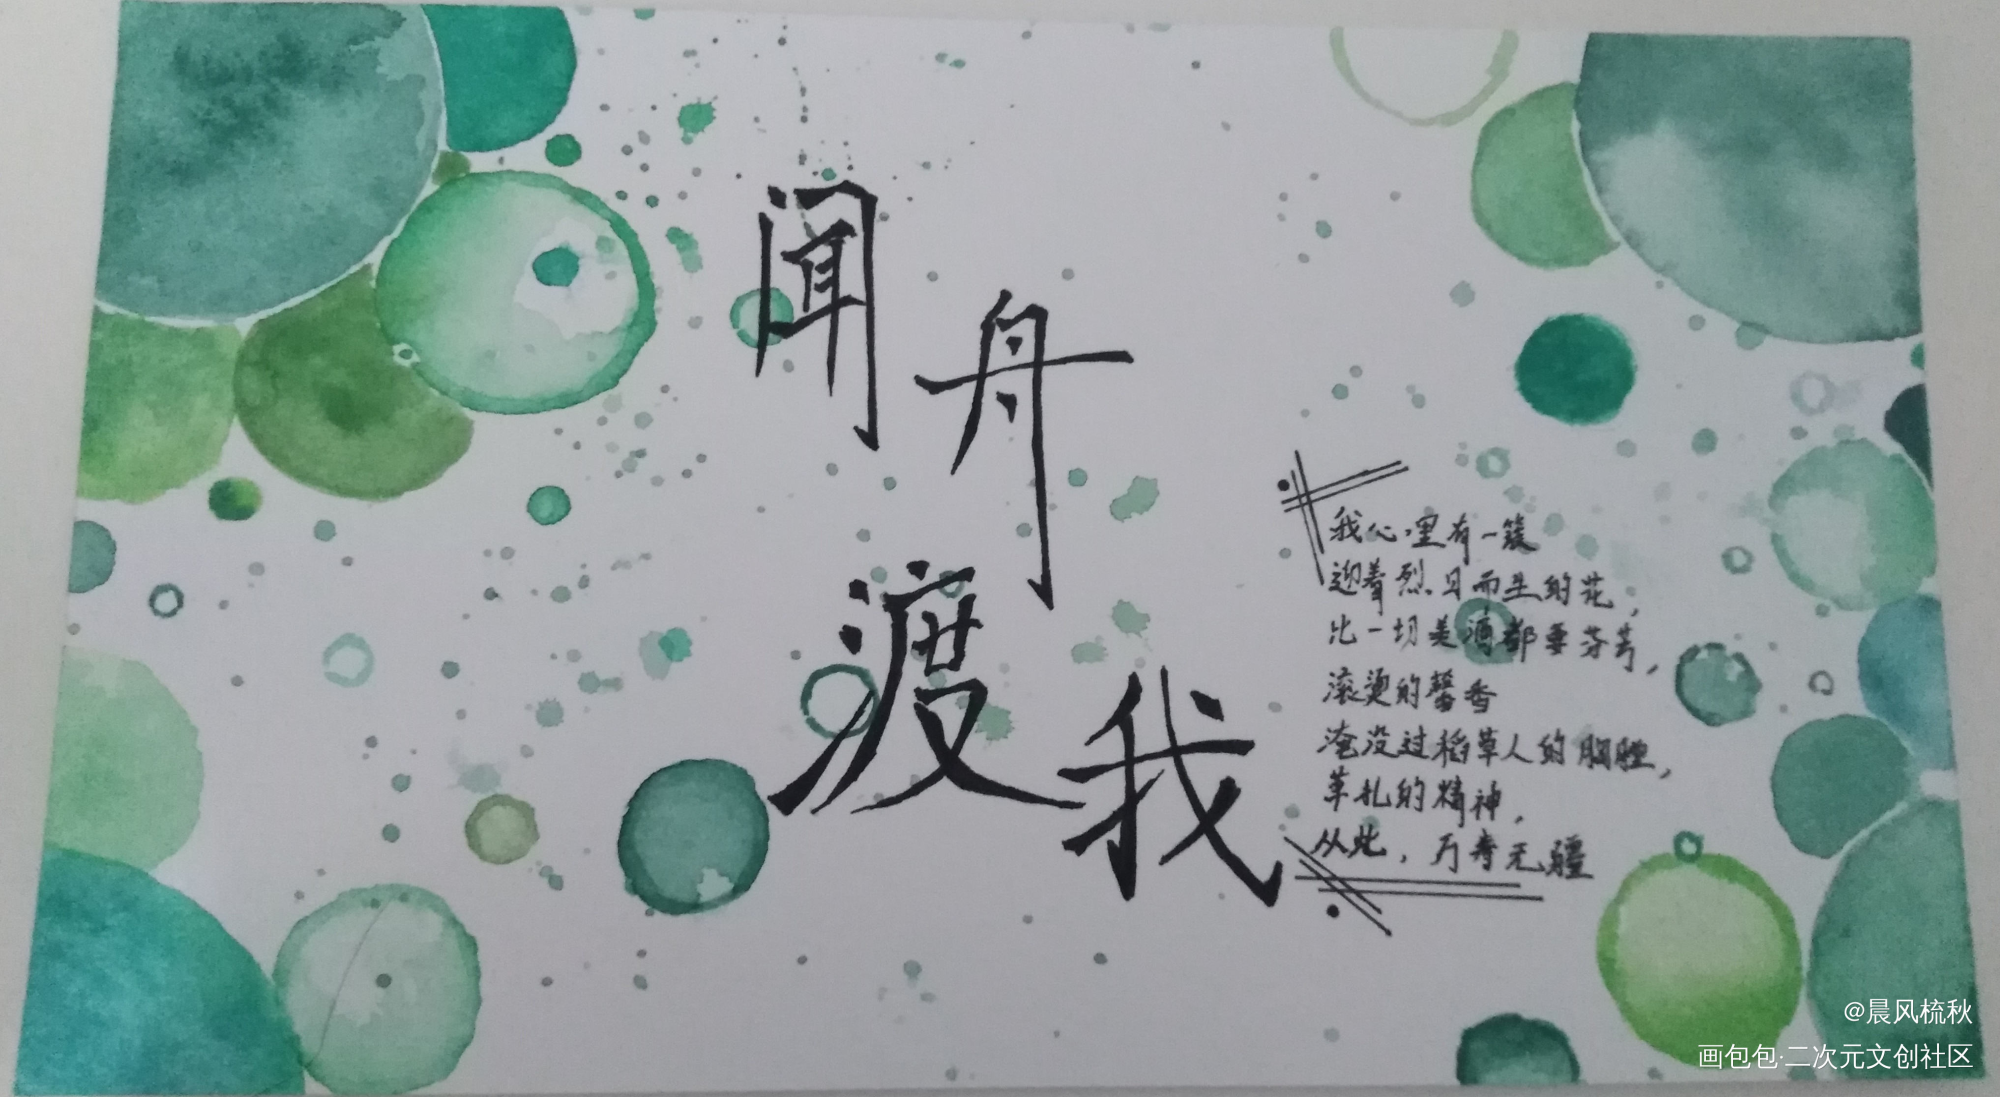 闻舟渡我
我心里有一簇
迎着烈日而生的花，
比一切美酒都要芬芳，
滚烫的馨香
淹没过稻草人的胸膛，
草扎的精神，
从此，万寿无疆
@晨风梳秋
画包包·二次元文创社区